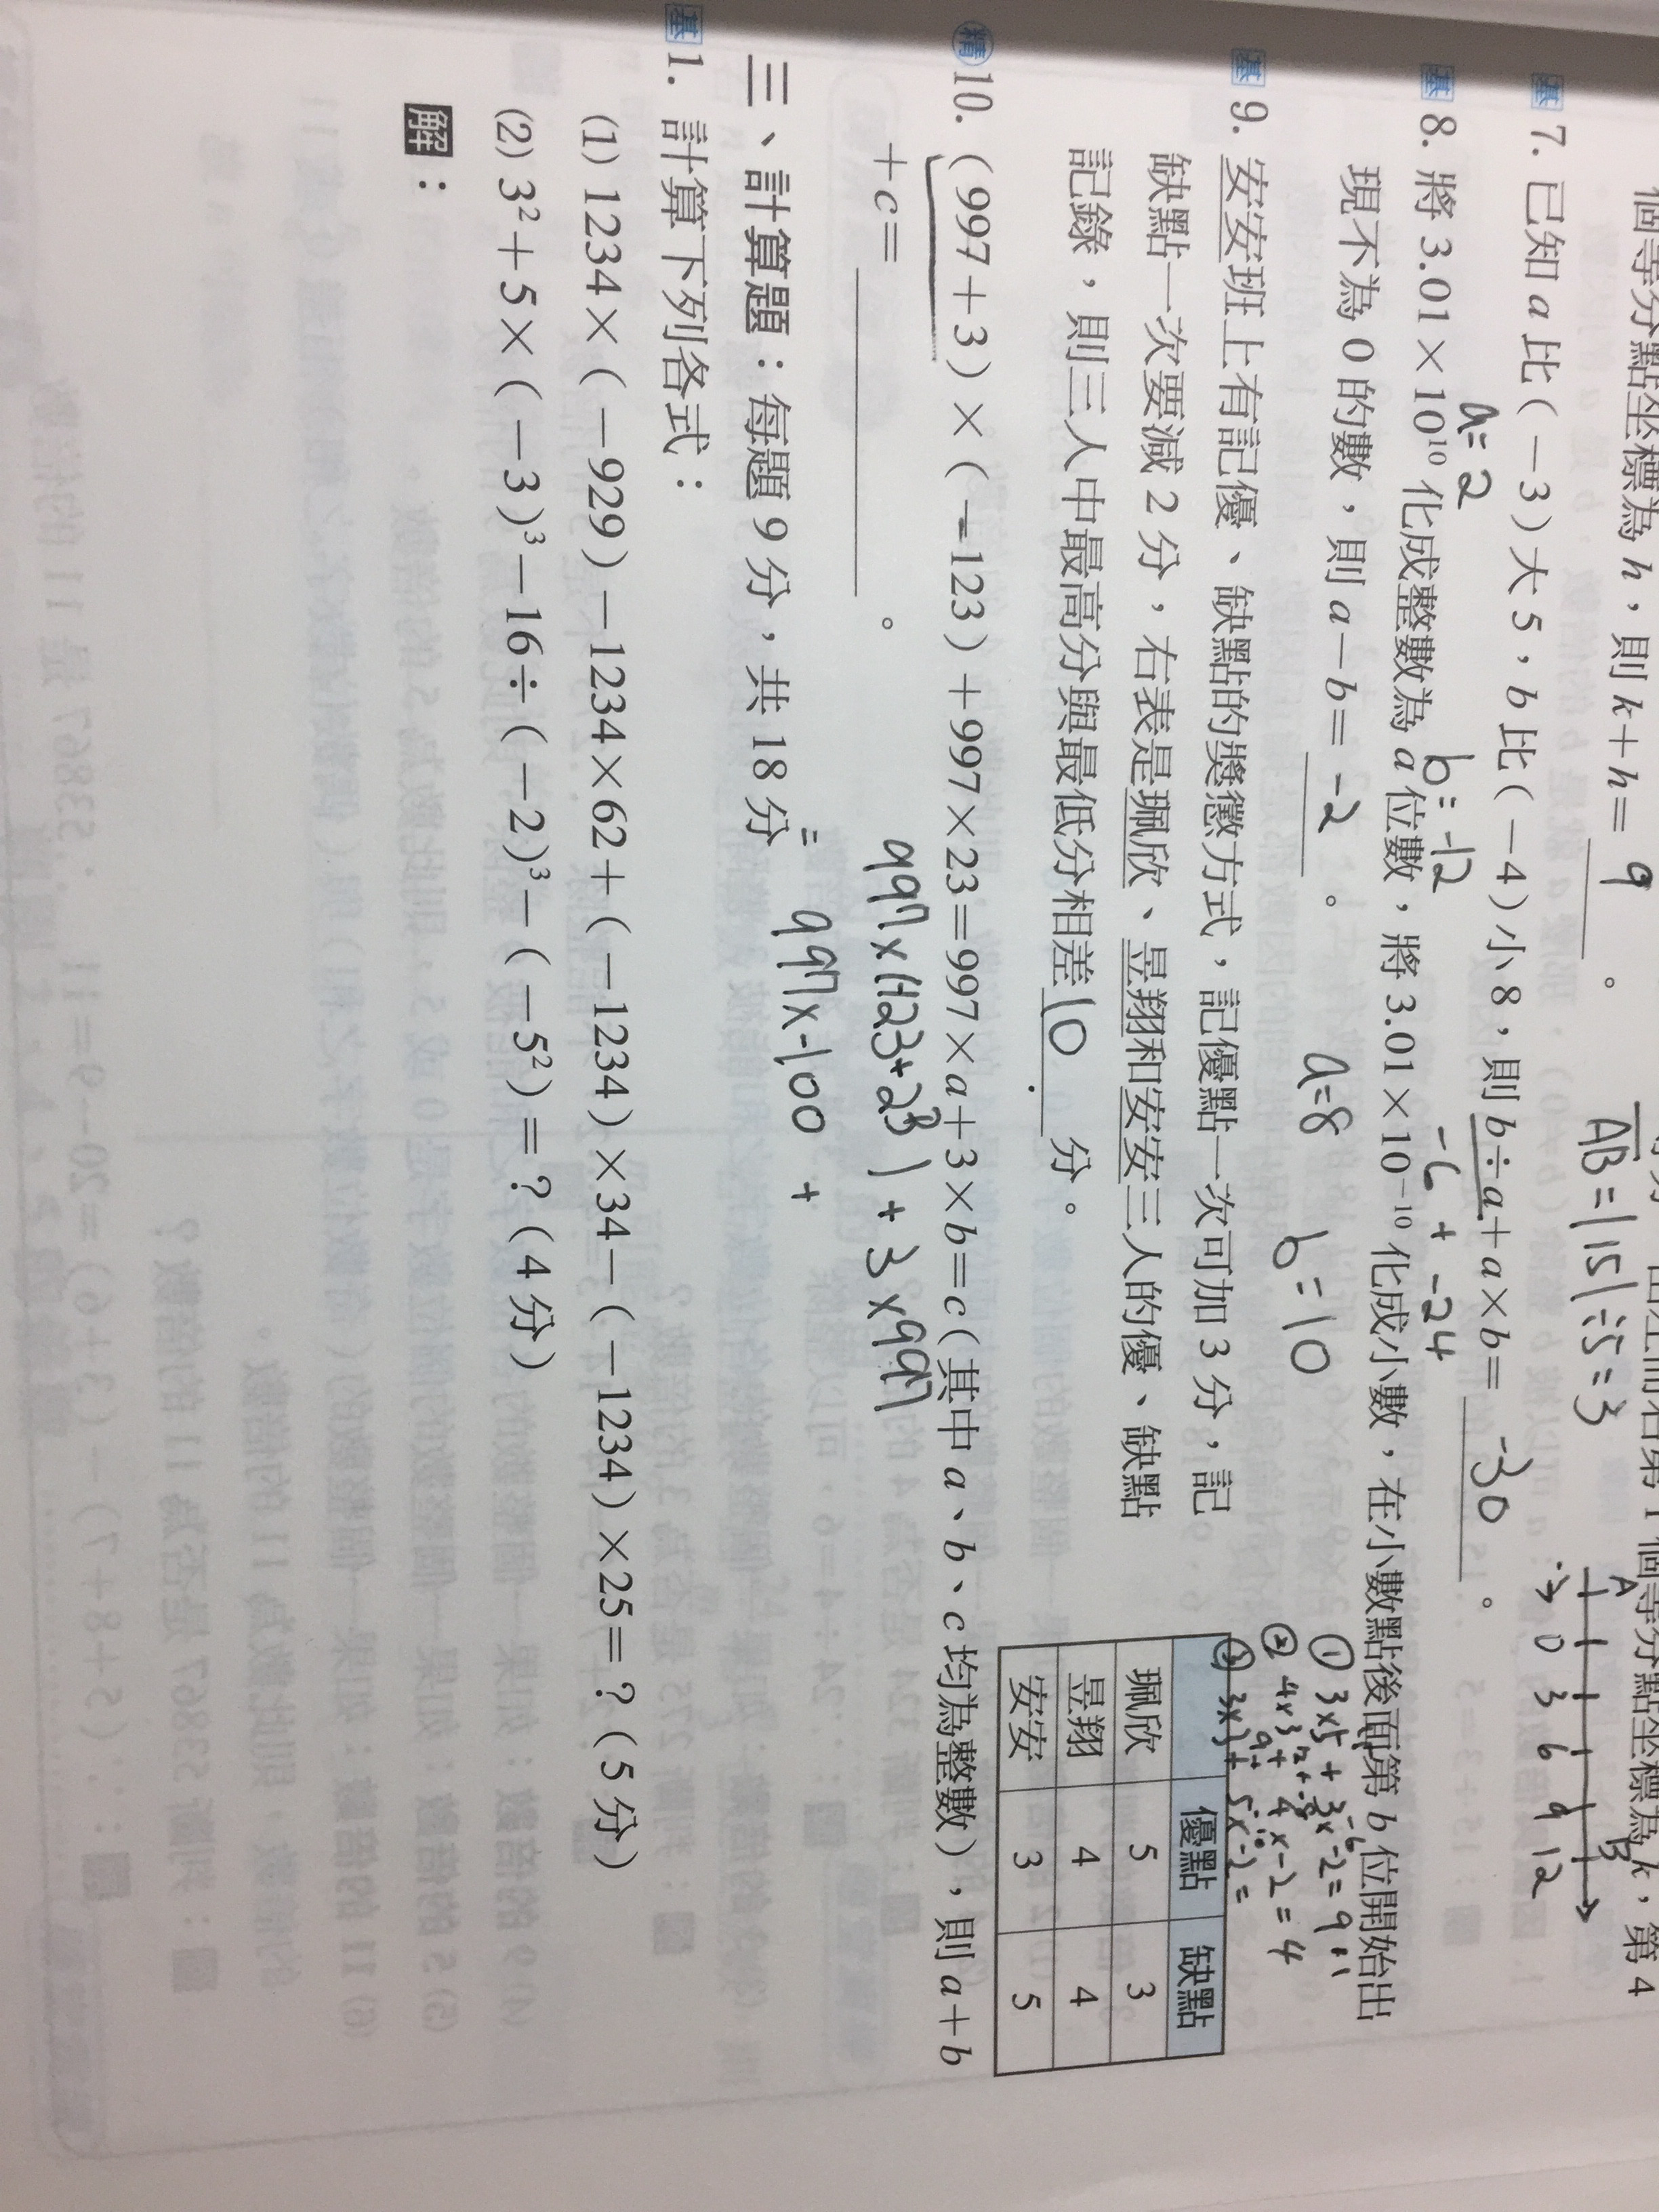 個等分點坐標為 h，則 k＋h＝ 9 。
AB＝|15|÷5＝3
A B
-3 0 3 6 9 12
基 7. 已知 a 比(－3)大 5，b 比(－4)小 8，則 b÷a＋a×b＝ -30 。
a=2 b=-12 -6 + -24
基 8. 將 3.01×10¹⁰ 化成整數為 a 位數，將 3.01×10⁻¹⁰ 化成小數，在小數點後面第 b 位開始出
現不為 0 的數，則 a－b＝ -2 。
a=8 b=10
① 3x5 + 3x-2=9
② 4x3 + 4x-2=4
③ 3x3+ 5x-2=
基 9. 安安班上有記優、缺點的獎懲方式，記優點一次可加 3 分，記
缺點一次要減 2 分，右表是珮欣、昱翔和安安三人的優、缺點
記錄，則三人中最高分與最低分相差 10 分。
優點 缺點
珮欣 5 3
昱翔 4 4
安安 3 5
精 10. (997＋3)×(－123)＋997×23＝997×a＋3×b＝c(其中 a、b、c 均為整數)，則 a＋b
＋c＝ 。
997x(-123+23)+3x997
= 997x-100 +
三、計算題：每題 9 分，共 18 分
基 1. 計算下列各式：
(1) 1234×(－929)－1234×62＋(－1234)×34－(－1234)×25＝？(5 分)
(2) 3²＋5×(－3)³－16÷(－2)³－(－5²)＝？(4 分)
解：